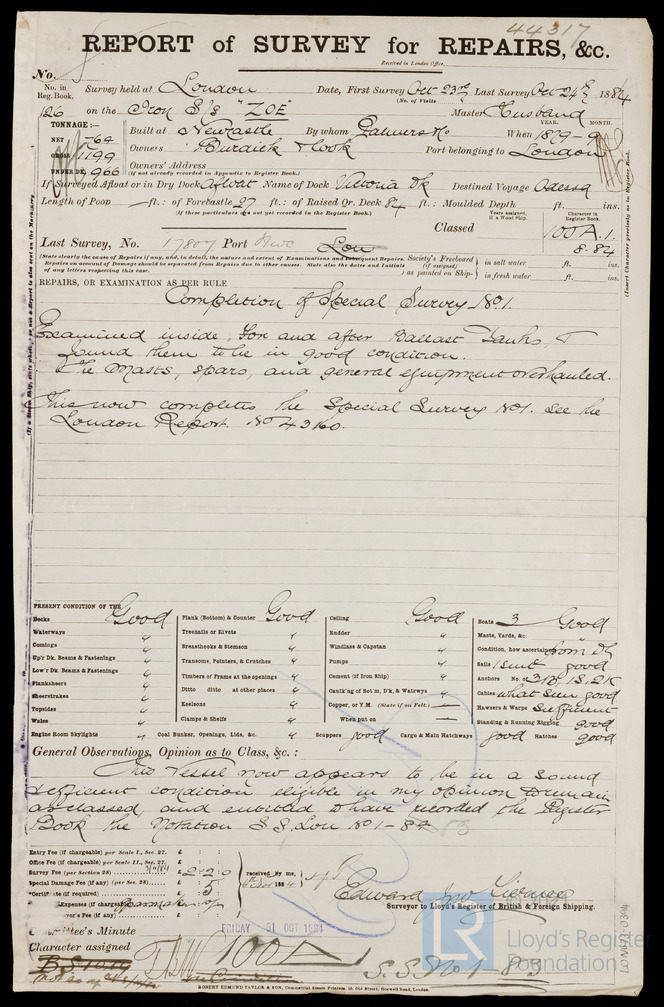 44317
REPORT of SURVEY for REPAIRS, &c.
Received in London Office,
No.
No. in Reg. Book. Survey held at London Date, First Survey Oct 23rd Last Survey Oct 24th 1884
(No. of Visits
126 on the Iron S/s "ZOE" Master Husband
TONNAGE:— YEAR. MONTH.
NET 764 Built at Newcastle By whom Palmers & Co When 1879-9
GROSS 1199 Owners Burdick & Cook Port belonging to London
UNDER DK. 966 Owners' Address
(if not already recorded in Appendix to Register Book.)
If Surveyed Afloat or in Dry Dock Afloat Name of Dock Victoria Dk Destined Voyage Odessa
Length of Poop ft.: of Forecastle 27 ft.: of Raised Qr. Deck 84 ft.: Moulded Depth ft. ins.
(If these particulars are not yet recorded in the Register Book.)
Years assigned, if a Wood Ship. Character in Register Book.
Classed 100A.1.
8.84
Last Survey, No. 17807 Port Newc Lon
(State clearly the cause of Repairs if any, and, in detail, the nature and extent of Examinations and subsequent Repairs.
Repairs on account of Damage should be separated from Repairs due to other causes. State also the dates and Initials
of any letters respecting this case.
Society's Freeboard (if assigned) as painted on Ship- in salt water ft. ins.
in fresh water ft. ins.
(Insert Character precisely as in Register Book.
REPAIRS, OR EXAMINATION AS PER RULE
Completion of Special Survey No 1.
Examined inside Fore and after Ballast Tanks &
found them to be in good condition.
The masts, spars, and general equipment overhauled.
This now completes the Special Survey No 1. See the
London Report. No 43160.
PRESENT CONDITION OF THE
Decks Good Plank (Bottom) & Counter Good Ceiling Good Boats 3 Good
Waterways " Treenails or Rivets " Rudder " Masts, Yards, &c.
Comings " Breasthooks & Stemson " Windlass & Capstan " Condition, how ascertained from Dk
Up'r Dk. Beams & Fastenings " Transoms, Pointers, & Crutches " Pumps " Sails 1 suit good
Low'r Dk. Beams & Fastenings " Timbers of Frame at the openings " Cement (if Iron Ship) " Anchors No. of 3B, 1S, 2K
Planksheers " Ditto ditto at other places " Caulk'ng of Bot'm, D'k, & Watrwys " Cables what seen good
Sheerstrakes " Keelsons " Copper, or Y.M. (State if on Felt.) — Hawsers & Warps Sufficient
Topsides " Clamps & Shelfs " When put on — Standing & Running Rigging good
Wales "
Engine Room Skylights " Coal Bunker, Openings, Lids, &c. " Scuppers good Cargo & Main Hatchways good Hatches good
General Observations, Opinion as to Class, &c.:
This Vessel now appears to be in a sound
& efficient condition eligible in my opinion to remain
as classed, and entitled to have recorded the Register
Book the Notation S.S. Lon No 1 - 84 83
Entry Fee (if chargeable) per Scale I., Sec. 27. £ : :
Office Fee (if chargeable) per Scale II., Sec. 27. £ : :
Survey Fee (per Section 28) £ 2 : 2 : 0
Special Damage Fee (if any) (per Sec. 28) £ : 5 :
*Certificate (if required) £ : :
Expenses (if chargeable)
received by me,
Edward Jno
Surveyor to Lloyd's Register of British & Foreign Shipping.
FRIDAY 31 OCT 1884
Committee's Minute
Character assigned 100A
S.S. No 1-83
ROBERT EDMUND TAYLOR & SON, Commercial Steam Printers, 19, Old Street, Goswell Road, London.
LR Lloyd's Register
Foundation